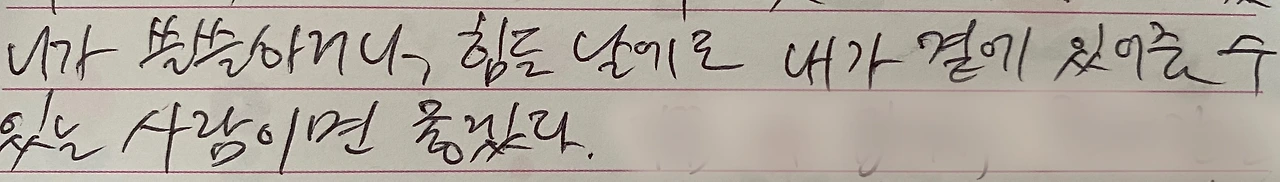 니가 쓸쓸하거나, 힘든 날에도 내가 곁에 있어줄 수
있는 사람이면 좋겠다.